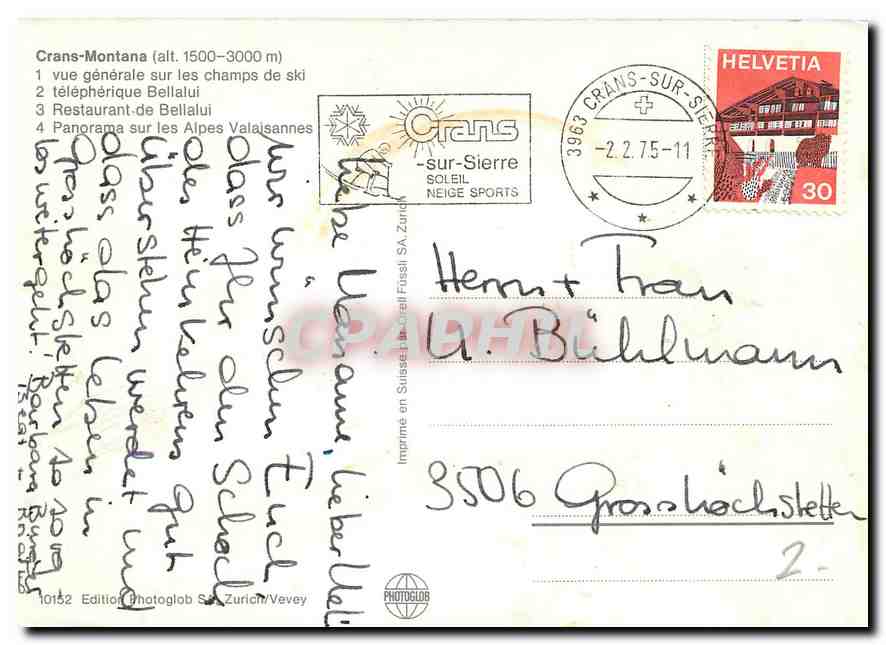 Crans-Montana (alt. 1500–3000 m)
1 vue générale sur les champs de ski
2 téléphérique Bellalui
3 Restaurant de Bellalui
4 Panorama sur les Alpes Valaisannes
Crans
-sur-Sierre
SOLEIL
NEIGE SPORTS
3963 CRANS-SUR-SIERRE
-2.2.75-11
HELVETIA
30
Liebe Marianne, lieber Ueli
wir wünschen Euch
dass Ihr den Schock
des Heimkehrens gut
überstehen werdet und
dass das Leben in
Grosshöchstetten so so
weitergeht! Barbara
Beat +
Herrn + Frau
U. Bühlmann
3506 Grosshöchstetten
2.-
Imprimé en Suisse par Orell Füssli SA. Zurich
10152 Edition Photoglob SA, Zurich/Vevey
PHOTOGLOB
CPAPHIL